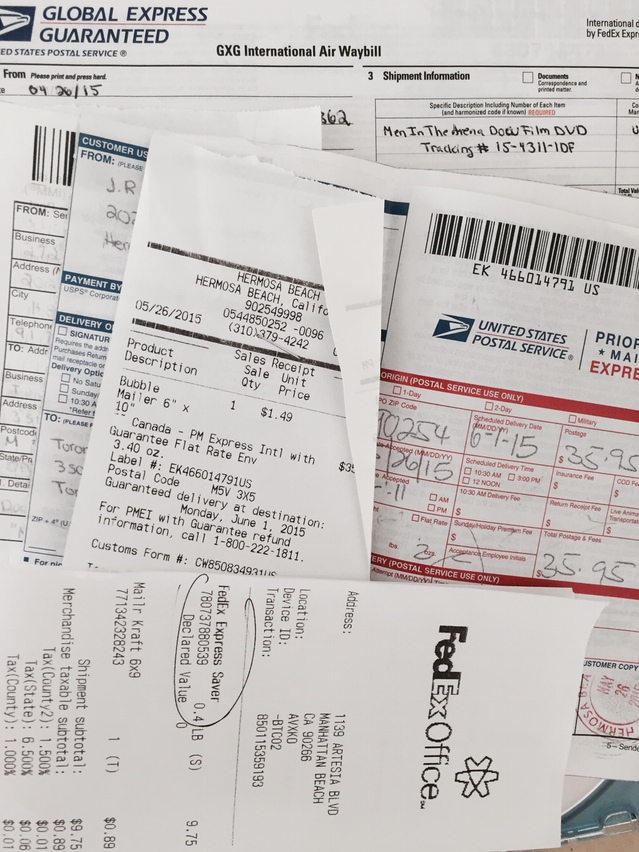 GLOBAL EXPRESS
GUARANTEED
UNITED STATES POSTAL SERVICE ®
GXG International Air Waybill
International
by FedEx
From Please print and press hard.
04/26/15
362
3 Shipment Information
Documents
Correspondence and
printed matter.
Specific Description Including Number of Each Item
(and harmonized code if known) REQUIRED
Men In The Arena Docu Film DVD
Tracking # 15-4311-1DF
Total
CUSTOMER
FROM: (PLEASE
J.R
202
FROM:
Business
Address
City
Telephone
TO:
Business
Address
Postcode
PAYMENT BY
USPS® Corporate
DELIVERY
SIGNATURE
Requires the
Delivery
No
Sunday
10:30 A
*Refer
TO: (PLEASE
Toron
ZIP + 4®
HERMOSA BEACH
HERMOSA BEACH,
902549998
0544850252 -0096
05/26/2015 (310)379-4242
Sales Receipt
Product Sale Unit
Description Qty Price
Bubble 1 $1.49
Mailer 6" x
10"
Canada - PM Express Intl with
Guarantee Flat Rate Env
3.40 oz.
Label #: EK466014791US
Postal Code M5V 3X5
Guaranteed delivery at destination:
Monday, June 1, 2015
For PMEI with Guarantee refund
information, call 1-800-222-1811.
Customs Form #: CW850834931US
EK 466014791 US
UNITED STATES
POSTAL SERVICE ®
PRIOR
★ MAI
EXPRE
ORIGIN (POSTAL SERVICE USE ONLY)
1-Day
2-Day
Military
PO ZIP Code
90254
Scheduled Delivery Date
(MM/DD/YY)
6-1-15
Postage
$ 35.95
Date Accepted (MM/DD/YY)
26/15
Scheduled Delivery Time
10:30 AM 3:00 PM
12 NOON
Insurance Fee
$
COD Fee
AM
PM
10:30 AM Delivery Fee
$
Return Receipt Fee
$
Live Animal
Flat Rate
Sunday/Holiday Premium Fee
$
Total Postage & Fees
lbs. ozs.
Acceptance Employee Initials
$ 35.95
DELIVERY (POSTAL SERVICE USE ONLY)
CUSTOMER COPY
HERMOSA
MAY
26
FedEx Office
Address: 1139 ARTESIA BLVD
MANHATTAN BEACH
CA 90266
Location: AVXKO
Device ID: -BTC02
Transaction: 850115359193
FedEx Express Saver
780737880539 0.4 LB (S) 9.75
Declared Value 0
Mailr Kraft 6x9
771342328243 1 (T) $0.89
Shipment subtotal: $9.75
Merchandise taxable subtotal: $0.89
Tax(County2): 1.500% $0.01
Tax(State): 6.500% $0.06
Tax(County): 1.000% $0.01